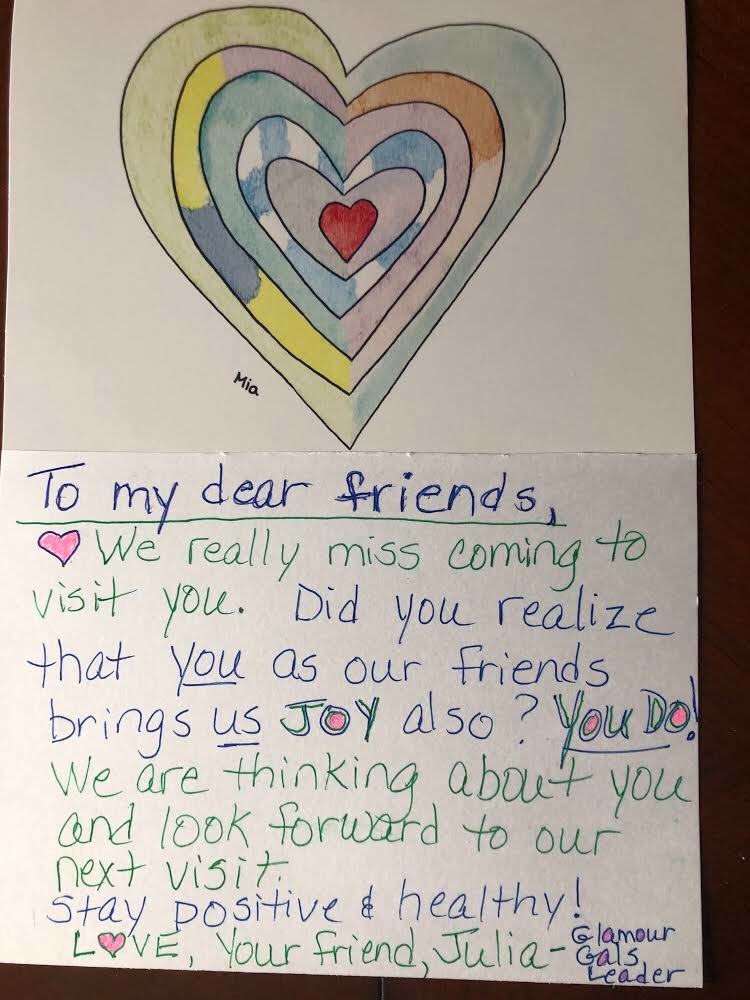 Mia
To my dear friends,
We really miss coming to
visit you. Did you realize
that you as our friends
brings us JOY also? YOU DO!
We are thinking about you
and look forward to our
next visit.
Stay positive & healthy!
LOVE, Your friend, Julia- Glamour
Gals
Leader